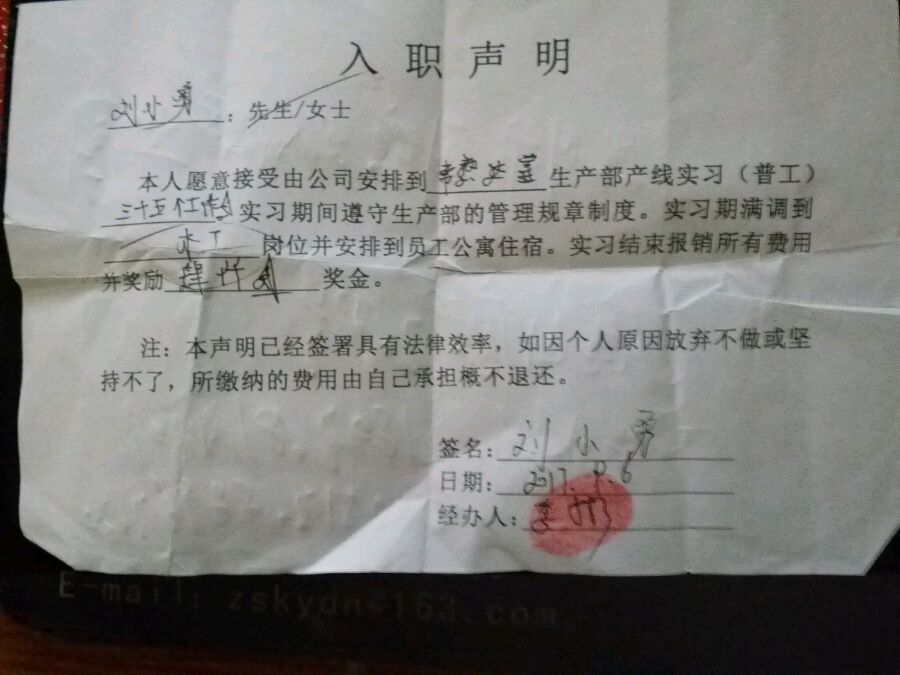 入职声明
刘小勇：先生/女士
本人愿意接受由公司安排到 生产部产线实习（普工）
三十五个工作日实习期间遵守生产部的管理规章制度。实习期满调到
木工 岗位并安排到员工公寓住宿。实习结束报销所有费用
并奖励 奖金。
注：本声明已经签署具有法律效率，如因个人原因放弃不做或坚
持不了，所缴纳的费用由自己承担概不退还。
签名：刘小勇
日期：2017.9.6
经办人：
E-mail: zskydn@163.com